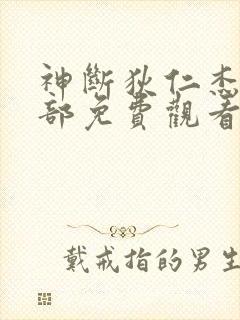 神斷狄仁杰
部免費觀看
戴戒指的男生